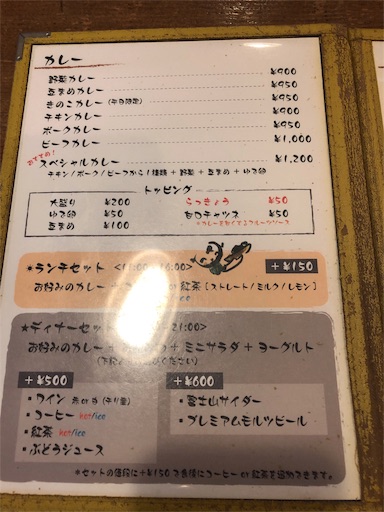 カレー
野菜カレー ¥900
豆まめカレー ¥950
きのこカレー (平日限定) ¥950
チキンカレー ¥900
ポークカレー ¥950
ビーフカレー ¥1,000
おすすめ!
スペシャルカレー ¥1,200
チキン/ポーク/ビーフから1種類 + 野菜 + 豆まめ + ゆで卵
トッピング
大盛り ¥200 らっきょう ¥50
ゆで卵 ¥50 甘口チャツネ ¥50
豆まめ ¥100 *カレーを甘くするフルーツソース
*ランチセット <11:00-16:00> +¥150
お好みのカレー + or 紅茶 [ストレート/ミルク/レモン]
ice
*ディナーセット 21:00>
お好みのカレー + + ミニサラダ + ヨーグルト
ください)
+¥500 +¥600
▪ワイン 赤or白 ▪富士山サイダー
▪コーヒー hot/ice ▪プレミアムモルツビール
▪紅茶 hot/ice
▪ぶどうジュース
*セットの値段に+¥150で食後にコーヒー or 紅茶を